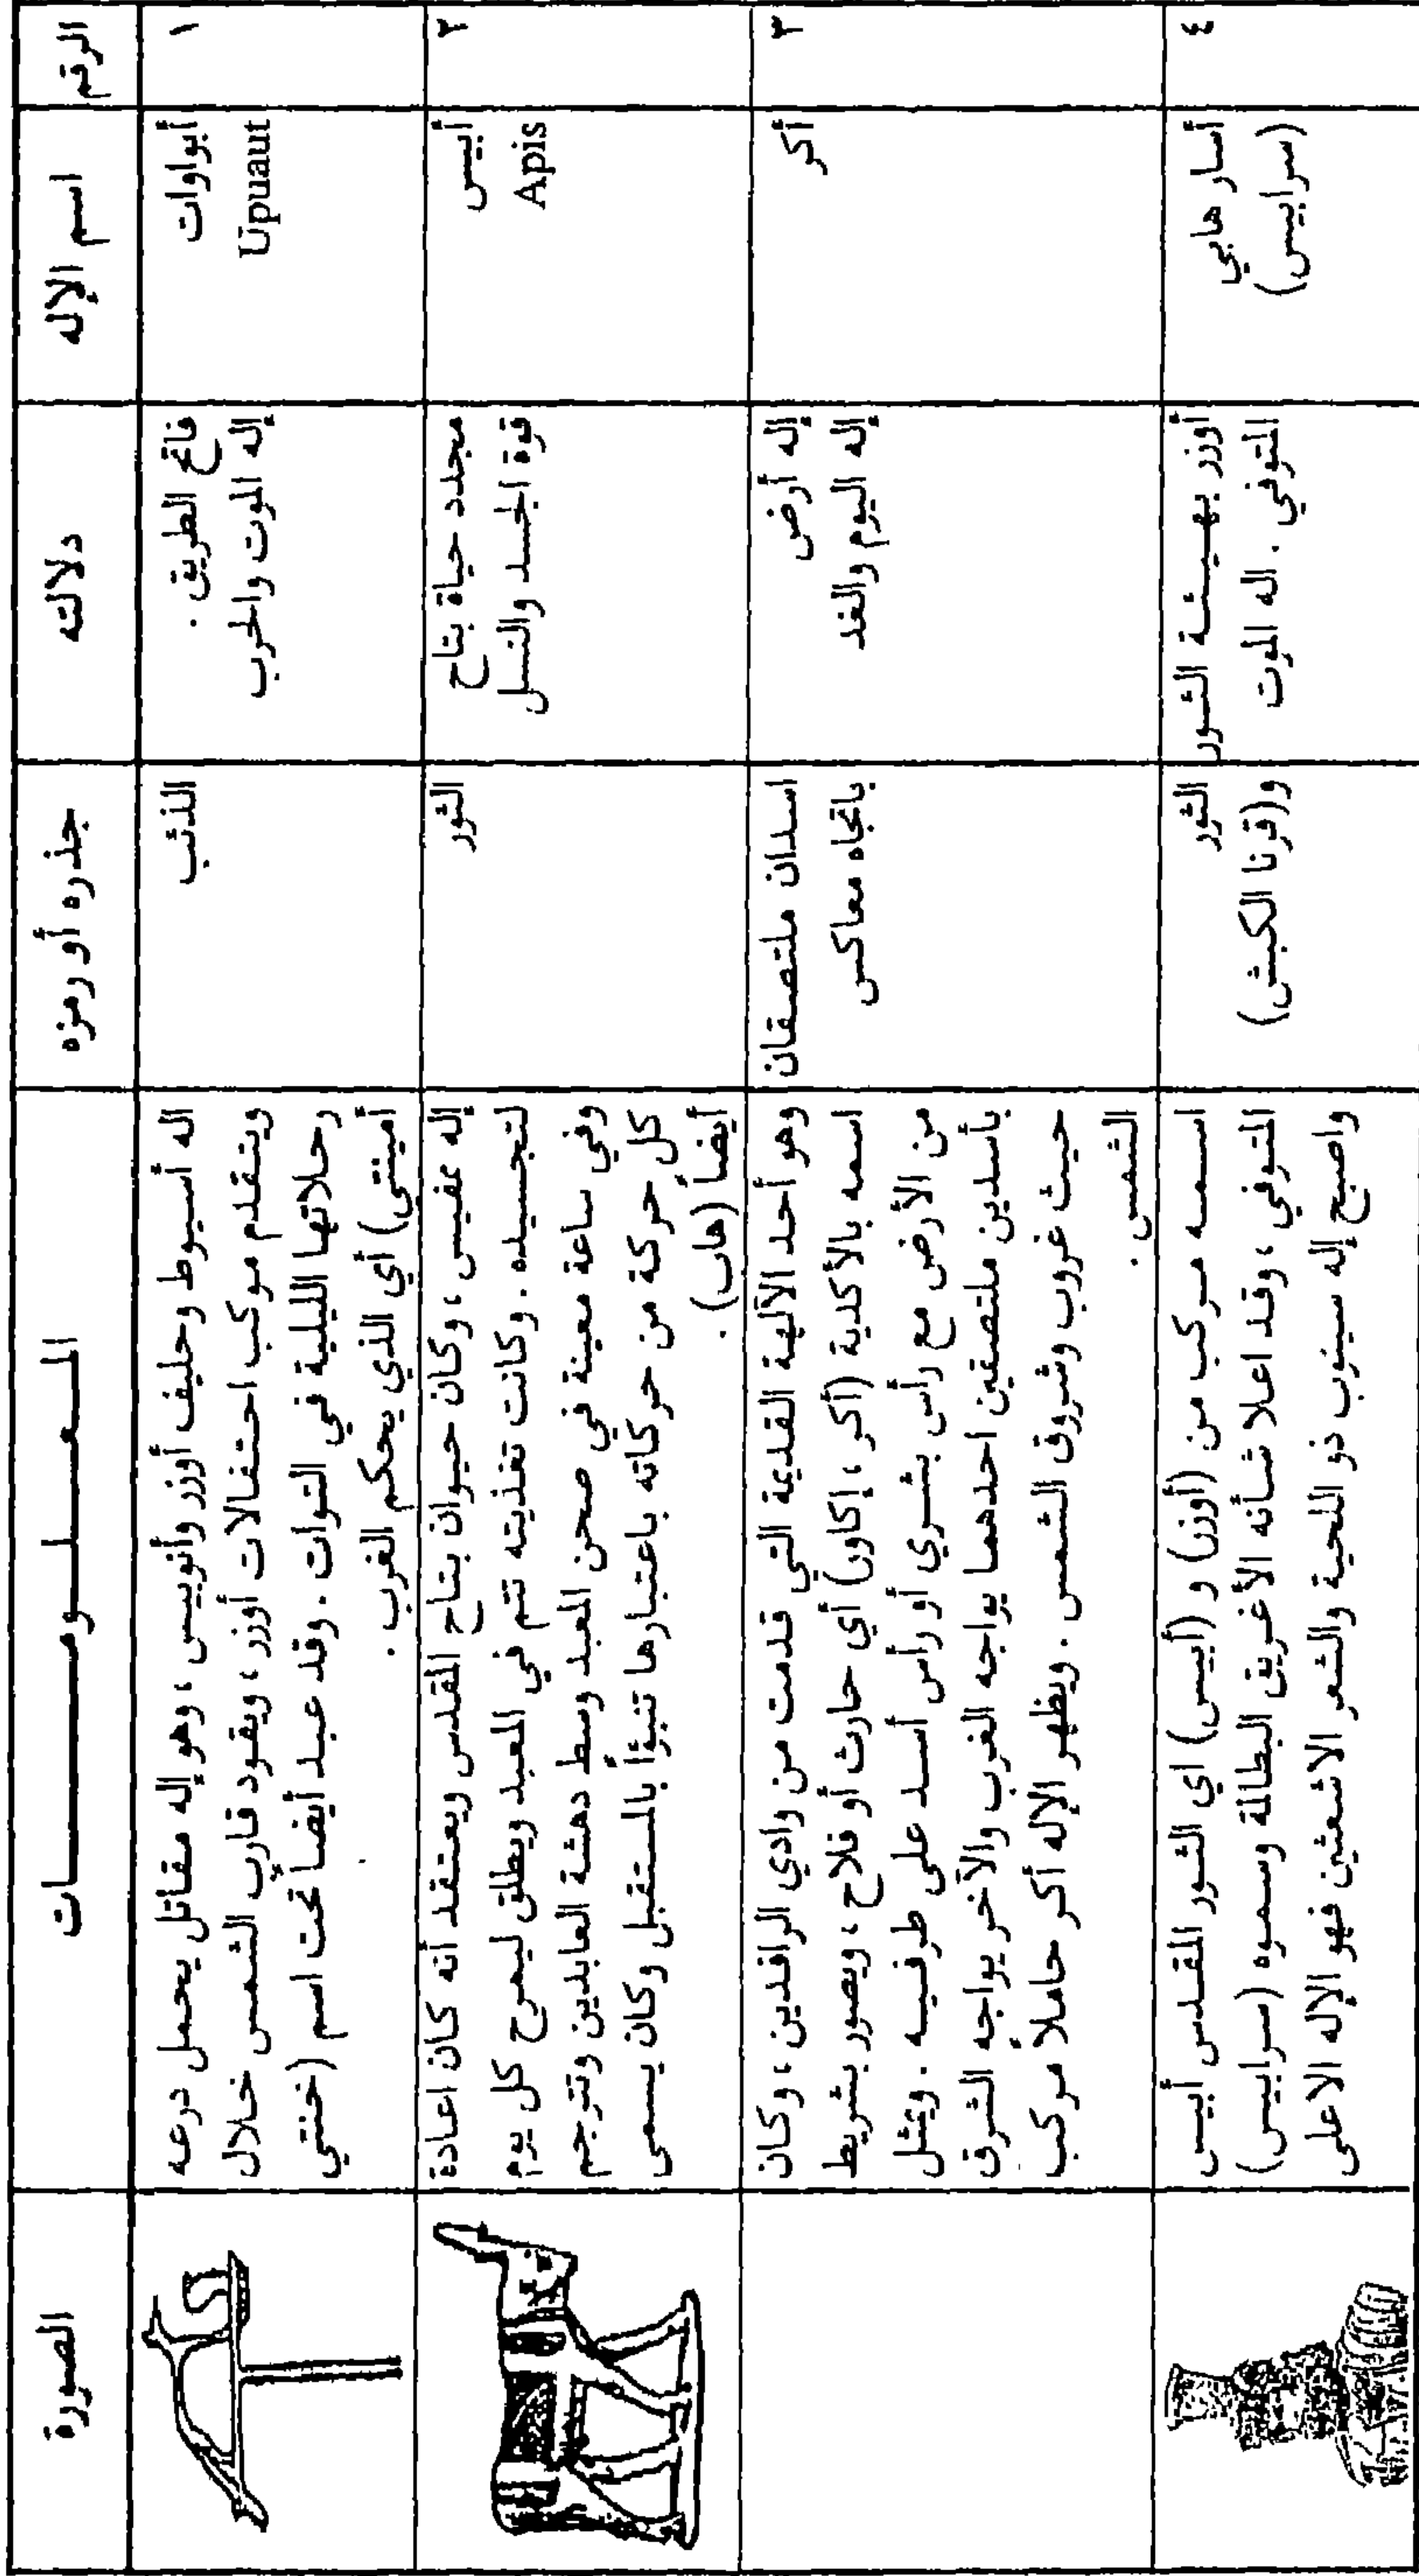 الرقم
اسم الإله
دلالته
جذره أو رمزه
المـعـــلـــومـــــــات
الصورة
١
أبواوات
Upuaut
فاتح الطريق .
إله الموت والحرب
الذئب
اله أسيوط وحليف أوزر وأنوبيس ، وهو إله مقاتل يحمل درعه
ويتقدم موكب احتفالات أوزر ، ويقود قارب الشمس خلال
رحلاتها الليلية في التوات . وقد عبد أيضاً تحت اسم (خنتي
أمينتي) أي الذي يحكم الغرب .
٢
أبيس
Apis
مجدد حياة بتاح
قوة الجسد والنسل
الثور
إله ممفيس ، وكان حيوان بتاح المقدس ويعتقد أنه كان اعادة
لتجسيده . وكانت تغذيته تتم في المعبد ويطلق ليمرح كل يوم
وفي ساعة معينة في صحن المعبد وسط دهشة العابدين وتترجم
كل حركة من حركاته باعتبارها تنبؤاً بالمستقبل وكان يسمى
أيضاً (هاب) .
٣
أكر
إله أرض
إله اليوم والغد
اسدان ملتصقان
باتجاه معاكس
وهو أحد الآلهة القديمة التي قدمت من وادي الرافدين ، وكان
اسمه بالأكدية (أكر ، إكاور) أي حارث أو فلاح ، ويصور بشريط
من الأرض مع رأس بشري أو رأس أسد على طرفيه . ويمثل
بأسدين ملتصقين احدهما يواجه الغرب والآخر يواجه الشرق
حيث غروب وشروق الشمس . ويظهر الإله أكر حاملاً مركب
الشمس .
٤
أسار هابي
(سرابيس)
أوزر بهيئة الثور
المتوفي . اله الموت
الثور
و(قرنا الكبش)
اسمه مركب من (أوزر) و (أبيس) اي الثور المقدس أبيس
المتوفي ، وقد اعلا شأنه الأغريق البطالمة وسموه (سرابيس)
واصبح إله سينوب ذو اللحية والشعر الاشعثين فهو الإله الاعلى